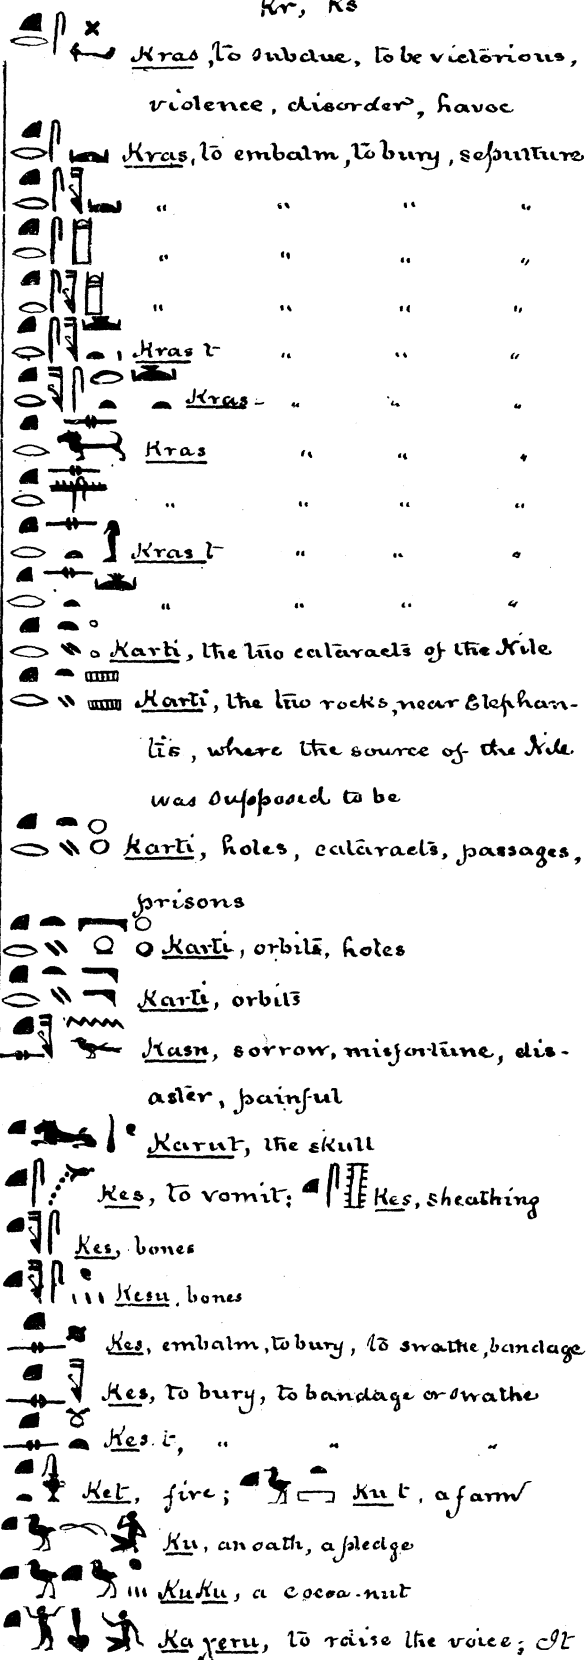 Kr, Ks
Kras, to subdue, to be victorious,
violence, disorder, havoc
Kras, to embalm, to bury, sepulture
" " " "
" " " "
" " " "
Kras t " " "
Kras- " " "
Kras " " "
" " " "
Kras t " " "
" " " "
Karti, the two cataracts of the Nile
Karti, the two rocks, near Elephan-
tis, where the source of the Nile
was supposed to be
Karti, holes, cataracts, passages,
prisons
Karti, orbits, holes
Karti, orbits
Kasn, sorrow, misfortune, dis-
aster, painful
Karut, the skull
Kes, to vomit; Kes, sheathing
Kes, bones
Kesu, bones
Kes, embalm, to bury, to swathe, bandage
Kes, to bury, to bandage or swathe
Kes.t, " " "
Ket, fire; Kut, a farm
Ku, an oath, a pledge
KuKu, a cocoa-nut
Ka χeru, to raise the voice; It